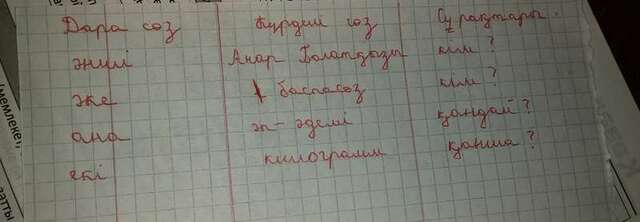 Дара сөз Күрделі сөз Сұрақтары.
әнші Анар Болатқызы кім?
әке баспасөз кім?
ана әп-әдемі қандай?
екі килограмм қанша?
(мемлекет,